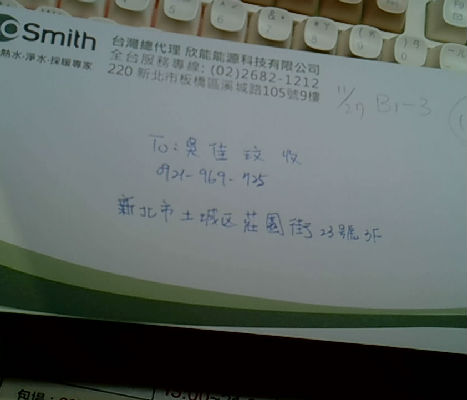 Smith
熱水·淨水·採暖專家
台灣總代理 欣能能源科技有限公司
全台服務專線: (02)2682-1212
220 新北市板橋區溪城路105號9樓
11/27 B1-3
To: 吳佳玟 收
0921-969-725
新北市土城区莊園街23號3F